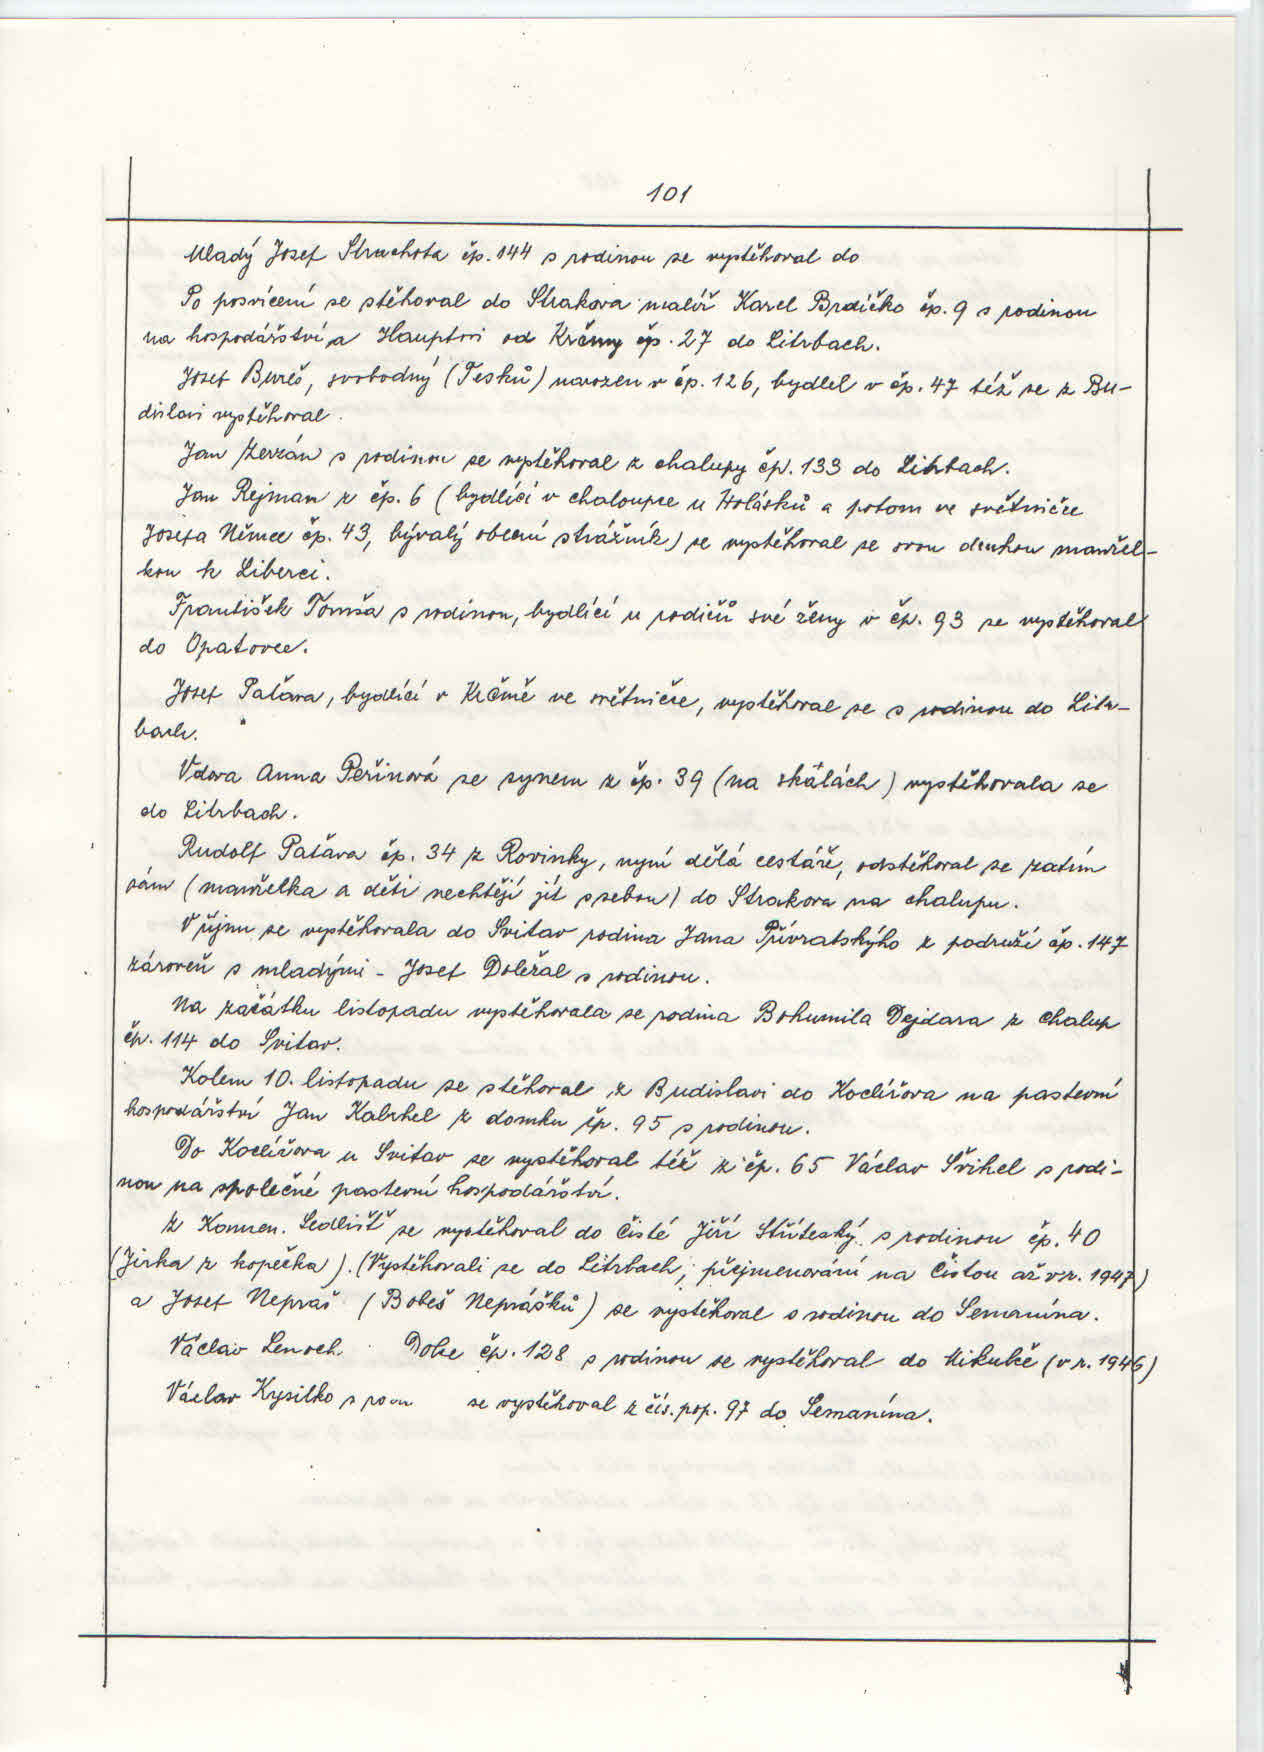 101
Mladý Josef Struchota čp. 144 s rodinou se vystěhoval do
Po posvícení se stěhoval do Strakova malíř Karel Brdíčko čp. 9 s rodinou
na hospodářství a Hauptovi od Krčmy čp. 27 do Litrbach.
Josef Bureš, svobodný (Tesků) narozen v čp. 126, bydlel v čp. 47 též se z Bu-
dislavi vystěhoval.
Jan Zerzán s rodinou se vystěhoval z chalupy čp. 133 do Litrbach.
Jan Rejman z čp. 6 (bydlící v chaloupce u Holásků a potom ve světničce
Josefa Němce čp. 43, bývalý obecní strážník) se vystěhoval se svou druhou manžel-
kou k Liberci.
František Tomša s rodinou, bydlící u rodičů své ženy v čp. 93 se vystěhoval
do Opatovce.
Josef Paťava, bydlící v Krčmě ve světničce, vystěhoval se s rodinou do Litr-
bach.
Vdova Anna Peřinová se synem z čp. 39 (na skálách) vystěhovala se
do Litrbach.
Rudolf Paťava čp. 34 z Rovinky, nyní dělá cestáře, odstěhoval se zatím
sám (manželka a děti nechtějí jít s sebou) do Strakova na chalupu.
V říjnu se vystěhovala do Svitav rodina Jana Přívratskýho z podruží čp. 147
zároveň s mladými - Josef Doležal s rodinou.
Na začátku listopadu vystěhovala se rodina Bohumila Dejdara z chalup
čp. 114 do Svitav.
Kolem 10. listopadu se stěhoval z Budislavi do Koclířova na pastevní
hospodářství Jan Kabrhel z domku čp. 95 s rodinou.
Do Koclířova u Svitav se vystěhoval též z čp. 65 Václav Švihel s rodi-
nou na společné pastevní hospodářství.
Z Kamen. Sedlišť se vystěhoval do Čisté Jiří Stříteský s rodinou čp. 40
(Jirka z kopečka). (Vystěhovali se do Litrbach, přejmenování na Čistou až v r. 1947)
a Josef Nepraš (Bobeš Neprášků) se vystěhoval s rodinou do Semanína.
Václav Lenoch Dolce čp. 128 s rodinou se vystěhoval do Mikulče (v r. 1946)
Václav Kysilko s se vystěhoval z čís. pop. 97 do Semanína.